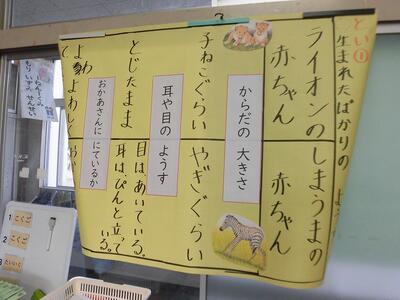 とい①
生まれたばかりの よう
ライオンの
赤ちゃん
しまうまの
赤ちゃん
からだの 大きさ
子ねこぐらい
やぎぐらい
耳や目の ようす
とじたまま
目はあいている。
耳は、ぴんと立って
いる。
おかあさんに にているか
よわよわしくて
1 こくご
2 こくご
3 たいいく